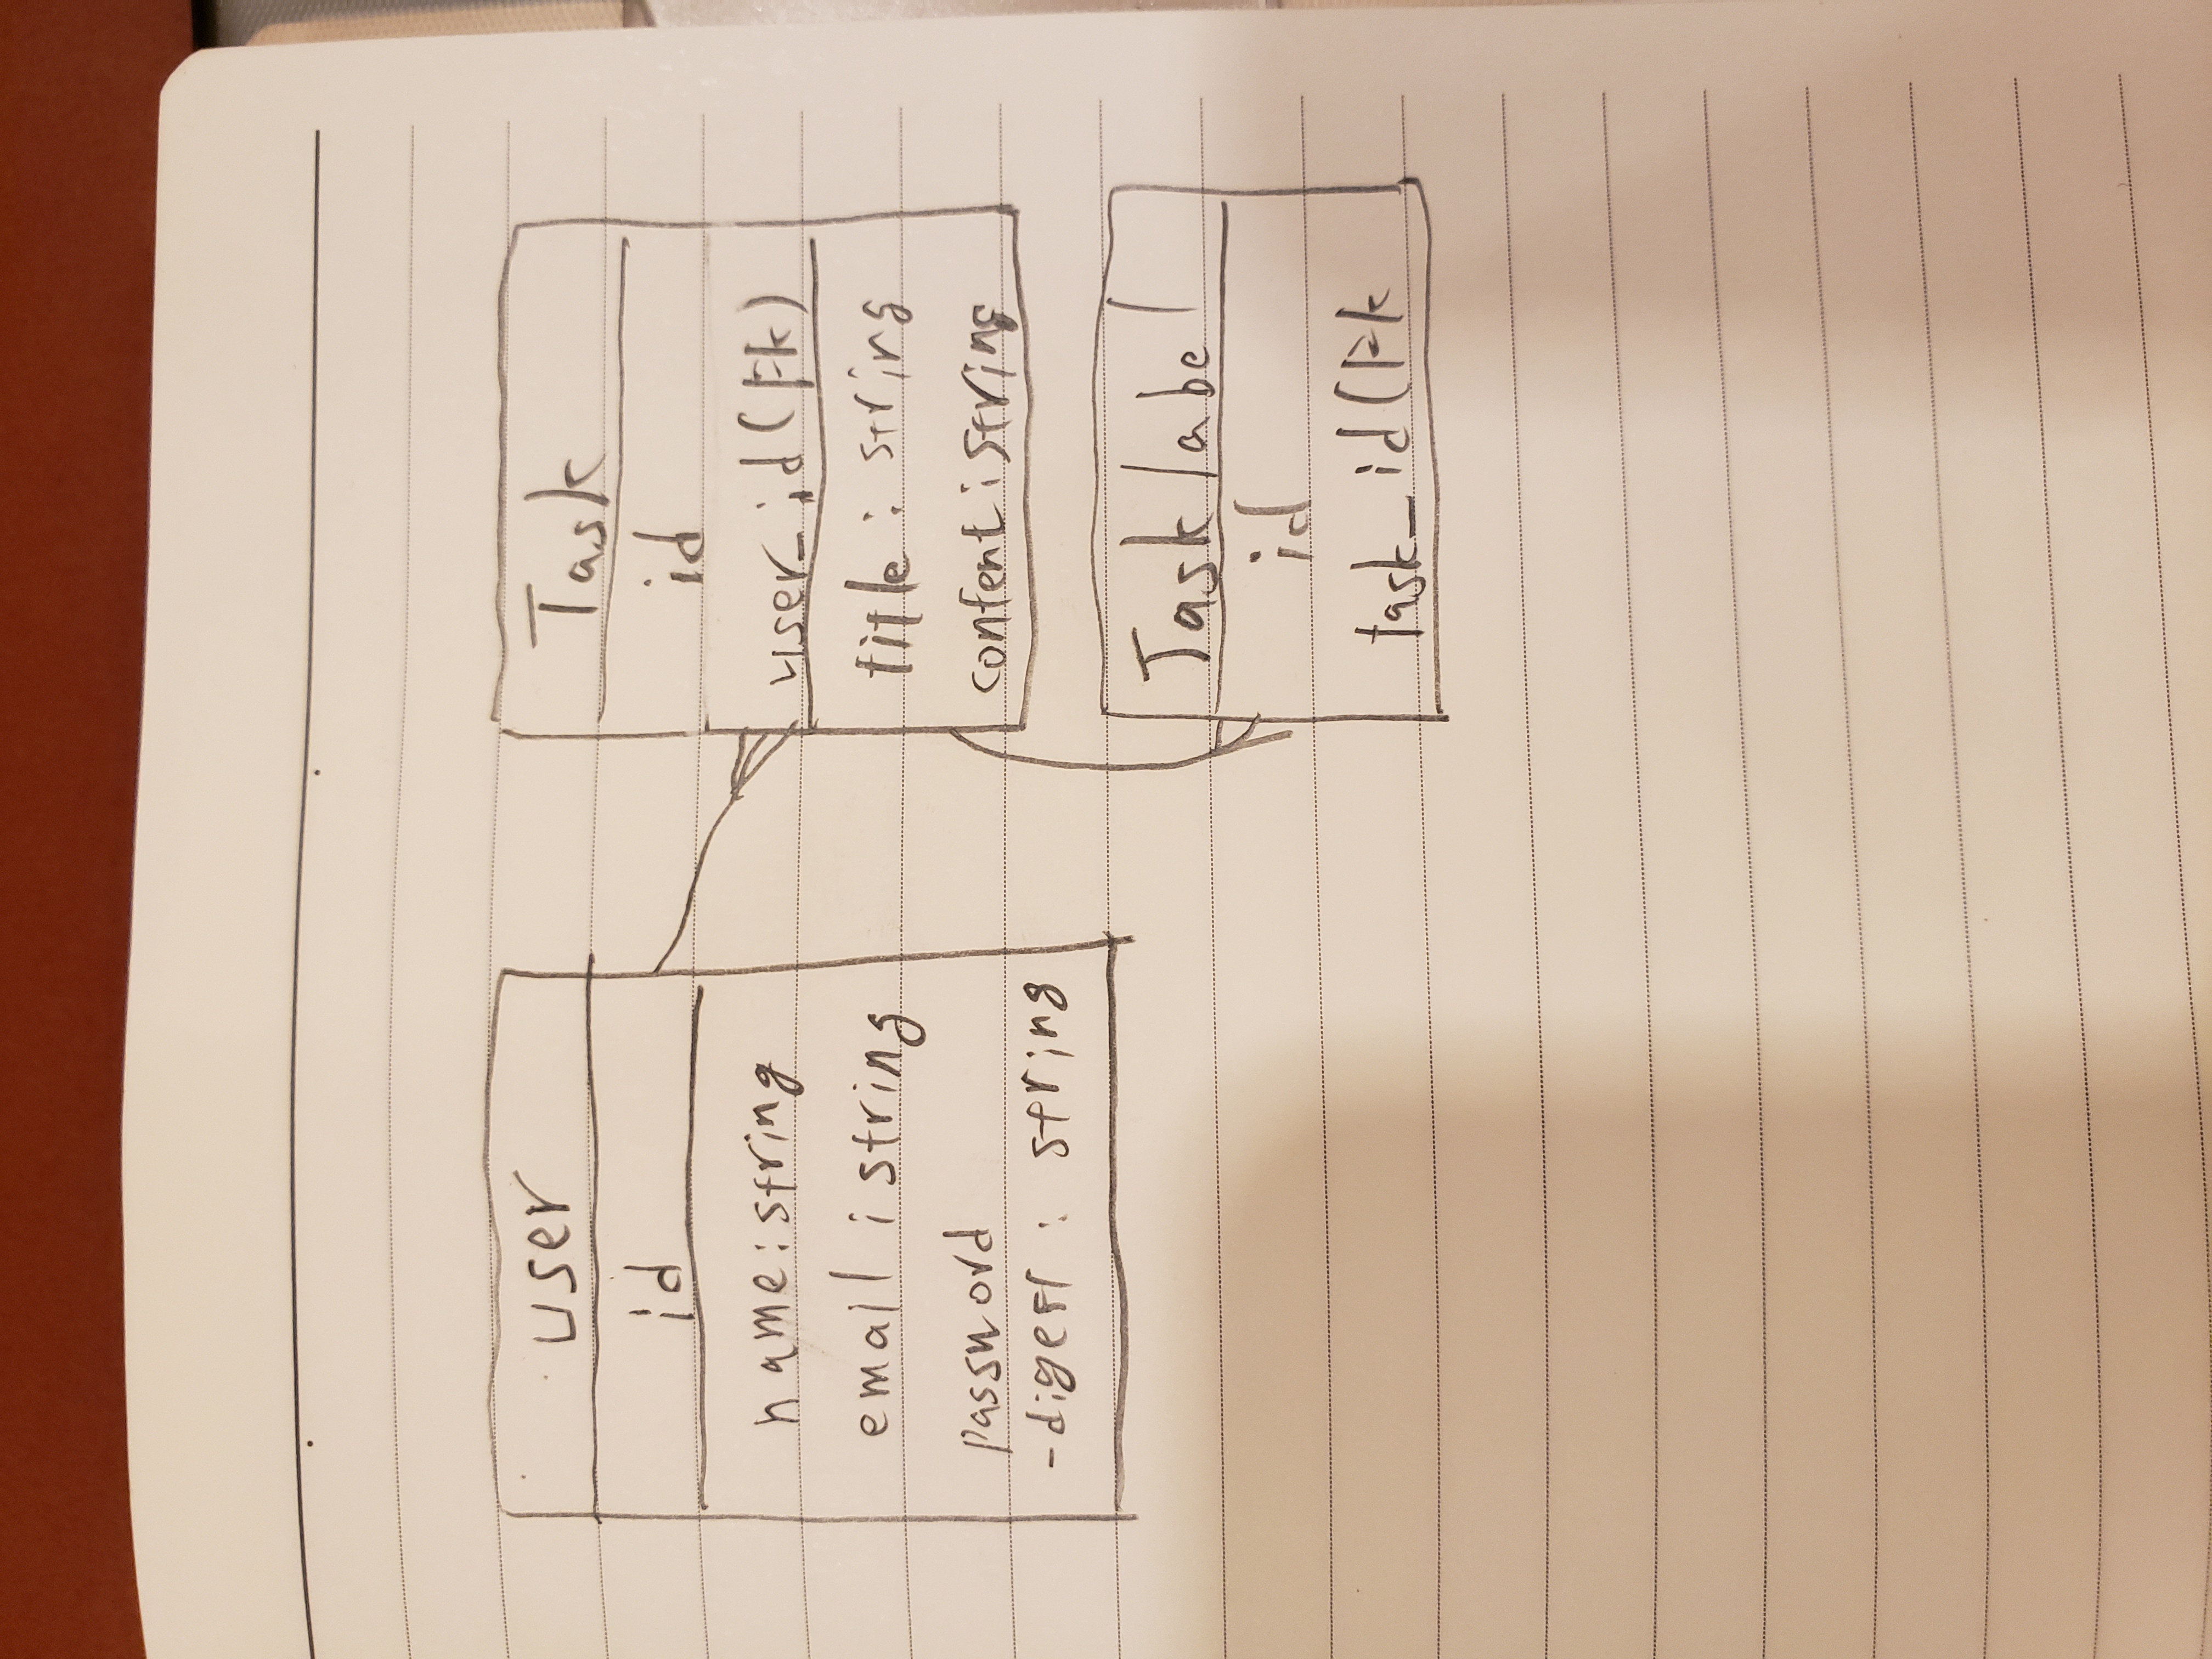 user
id
name:string
email:string
password
-digest : string
Task
id
user_id(Fk)
title : string
content:string
Task label
id
task_id(Fk